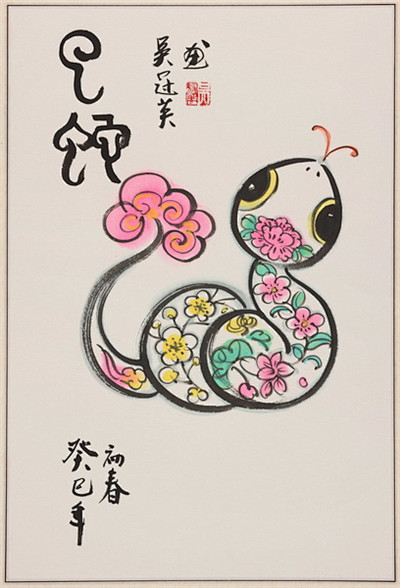 巳蛇
吴冠英
画
癸巳年
初春